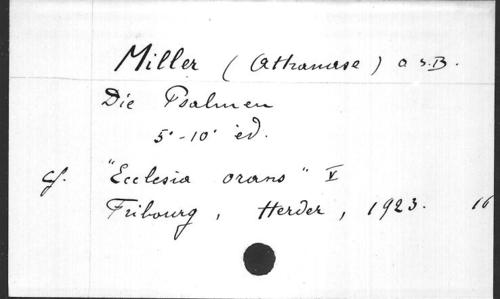 Miller (Athanase) O S.B.
Die Psalmen
5e-10e éd.
cf. "Ecclesia orans" V
Fribourg, Herder, 1923. 16